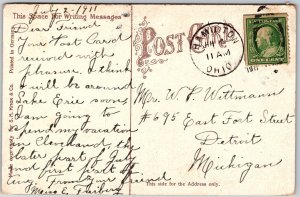 July 2-1911
This Space For Writing Messages
Dear friend
Your Post Card
received with
pleasure. I think
I will be around
Lake Erie soon
I am going to
spend my vacation
in Cleveland, the
later part of July
and first part of
Aug. From your friend
Miss C.
Printed in Germany.
Made expressly for S.H. Knox & Co.
POST CARD
HAMILTON
11 AM
OHIO
ONE CENT
Mr. W. F. Wittmann
#695 East Fort Street
Detroit
Michigan
This side for the Address only.